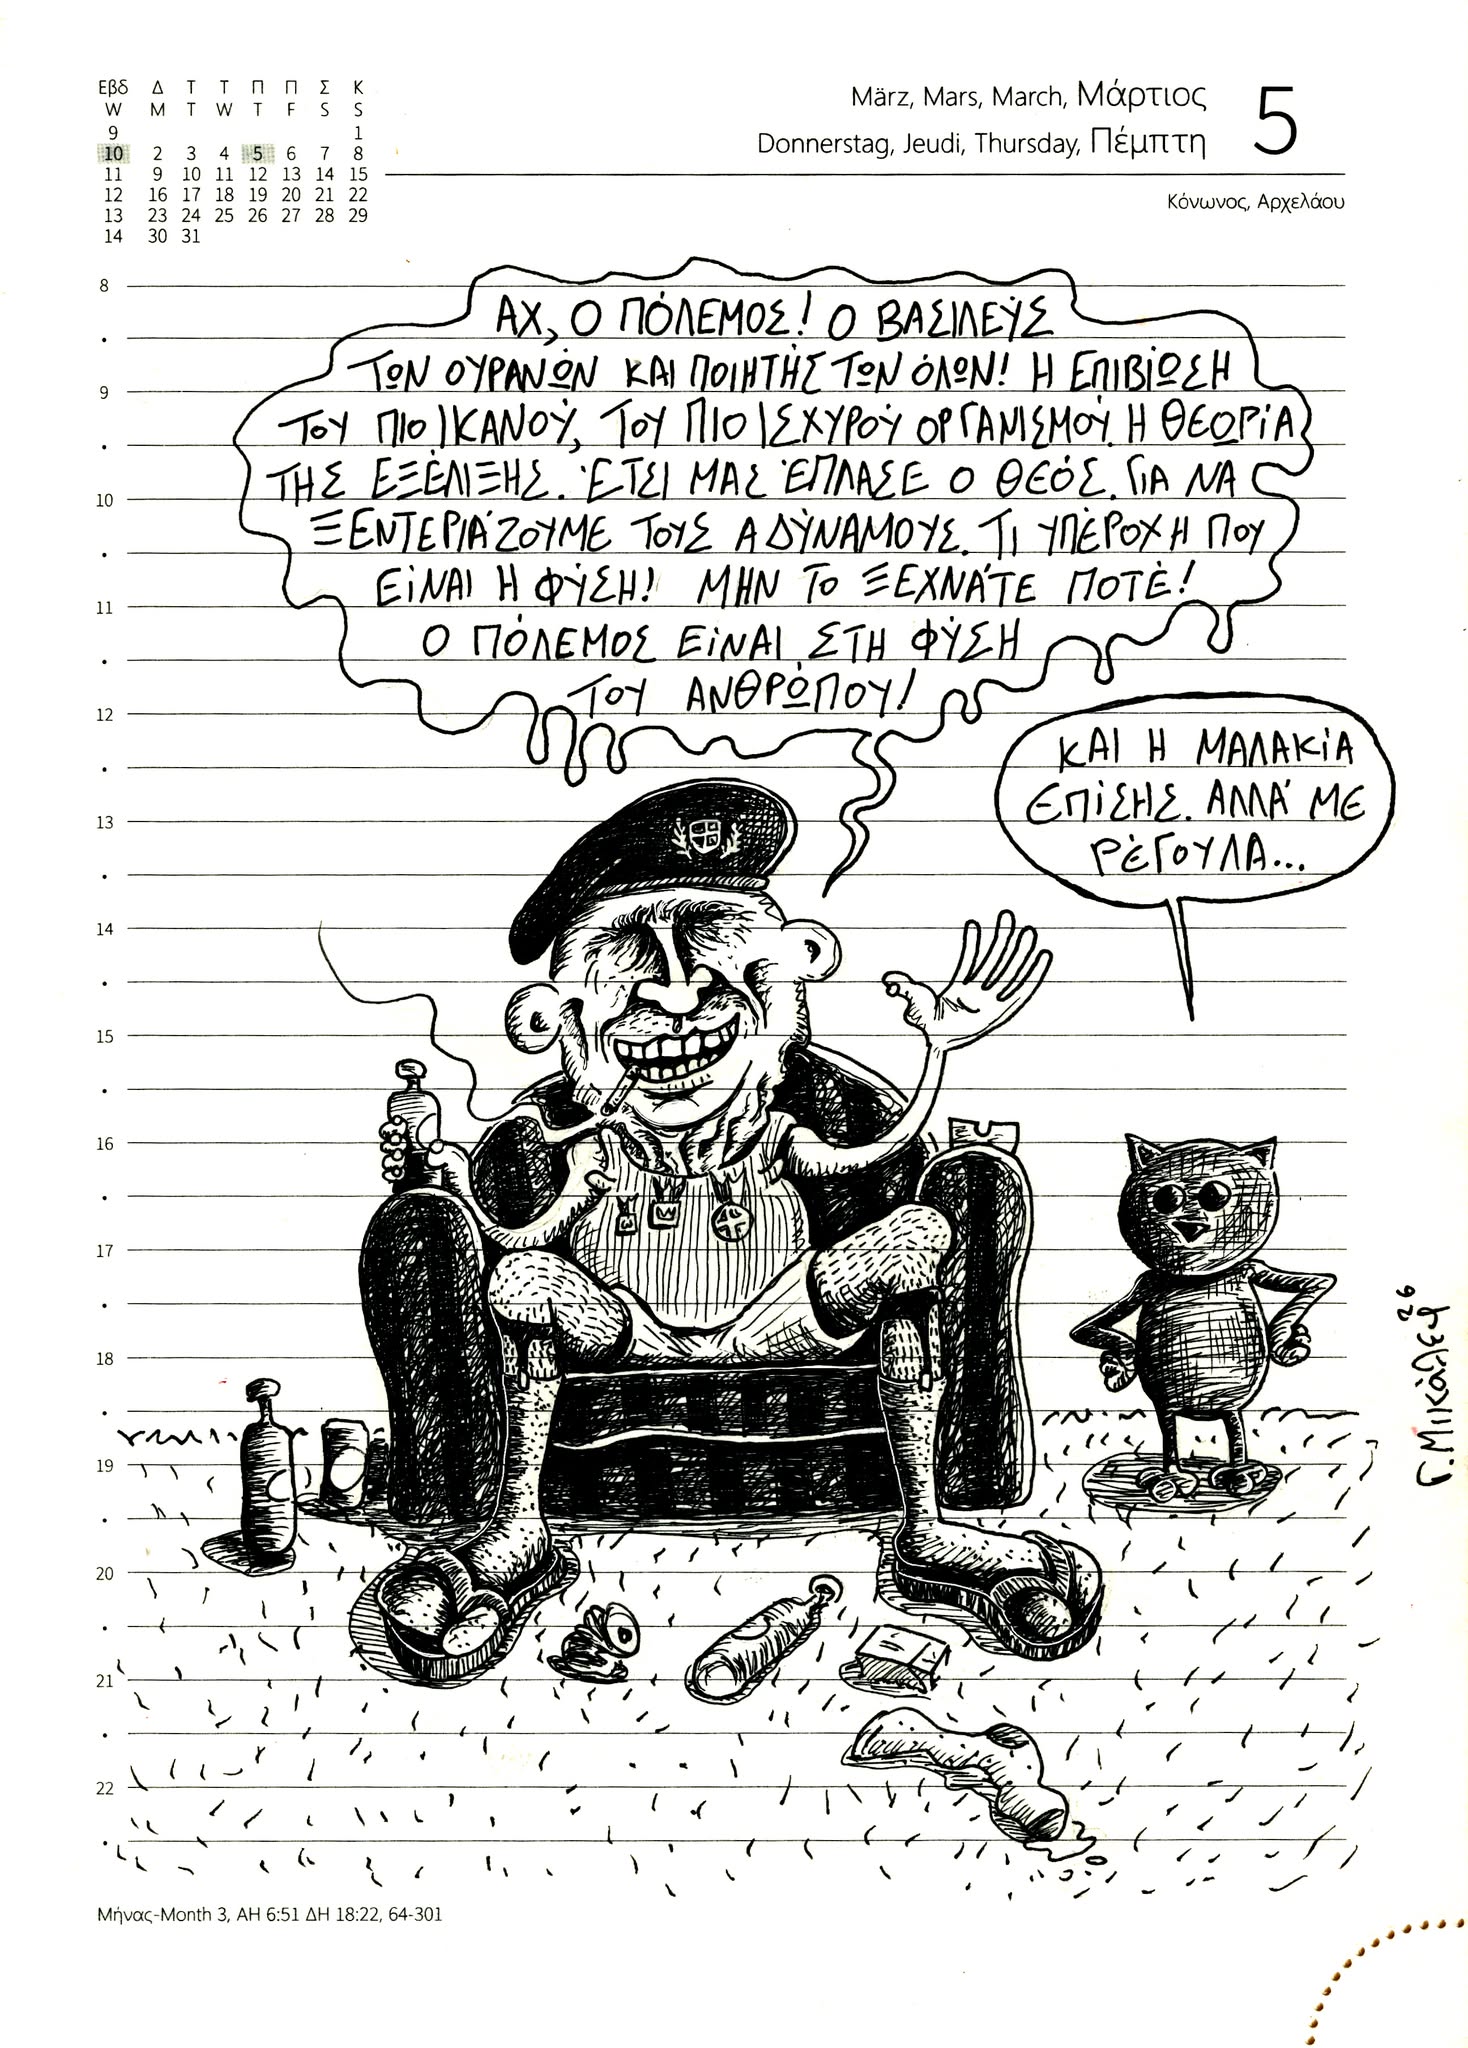 Εβδ Δ Τ Τ Π Π Σ Κ
W M T W T F S S
9 1
10 2 3 4 5 6 7 8
11 9 10 11 12 13 14 15
12 16 17 18 19 20 21 22
13 23 24 25 26 27 28 29
14 30 31
März, Mars, March, Μάρτιος
Donnerstag, Jeudi, Thursday, Πέμπτη
5
Κόνωνος, Αρχελάου
ΑΧ, Ο ΠΌΛΕΜΟΣ! Ο ΒΑΣΙΛΕΎΣ
ΤΩΝ ΟΥΡΑΝΏΝ ΚΑΙ ΠΟΙΗΤΉΣ ΤΩΝ ΌΛΩΝ! Η ΕΠΙΒΊΩΣΗ
ΤΟΥ ΠΙΟ ΙΚΑΝΟΎ, ΤΟΥ ΠΙΟ ΙΣΧΥΡΟΎ ΟΡΓΑΝΙΣΜΟΎ. Η ΘΕΩΡΊΑ
ΤΗΣ ΕΞΈΛΙΞΗΣ. ΈΤΣΙ ΜΑΣ ΈΠΛΑΣΕ Ο ΘΕΌΣ. ΓΙΑ ΝΑ
ΞΕΝΤΕΡΙΆΖΟΥΜΕ ΤΟΥΣ ΑΔΎΝΑΜΟΥΣ. ΤΙ ΥΠΈΡΟΧΗ ΠΟΥ
ΕΊΝΑΙ Η ΦΎΣΗ! ΜΗΝ ΤΟ ΞΕΧΝΆΤΕ ΠΟΤΈ!
Ο ΠΌΛΕΜΟΣ ΕΊΝΑΙ ΣΤΗ ΦΎΣΗ
ΤΟΥ ΑΝΘΡΏΠΟΥ!
ΚΑΙ Η ΜΑΛΑΚΊΑ
ΕΠΊΣΗΣ. ΑΛΛΆ ΜΕ
ΡΈΓΟΥΛΑ...
8
9
10
11
12
13
14
15
16
17
18
19
20
21
22
Γ. Μικάλεφ '26
Μήνας-Month 3, ΑΗ 6:51 ΔΗ 18:22, 64-301